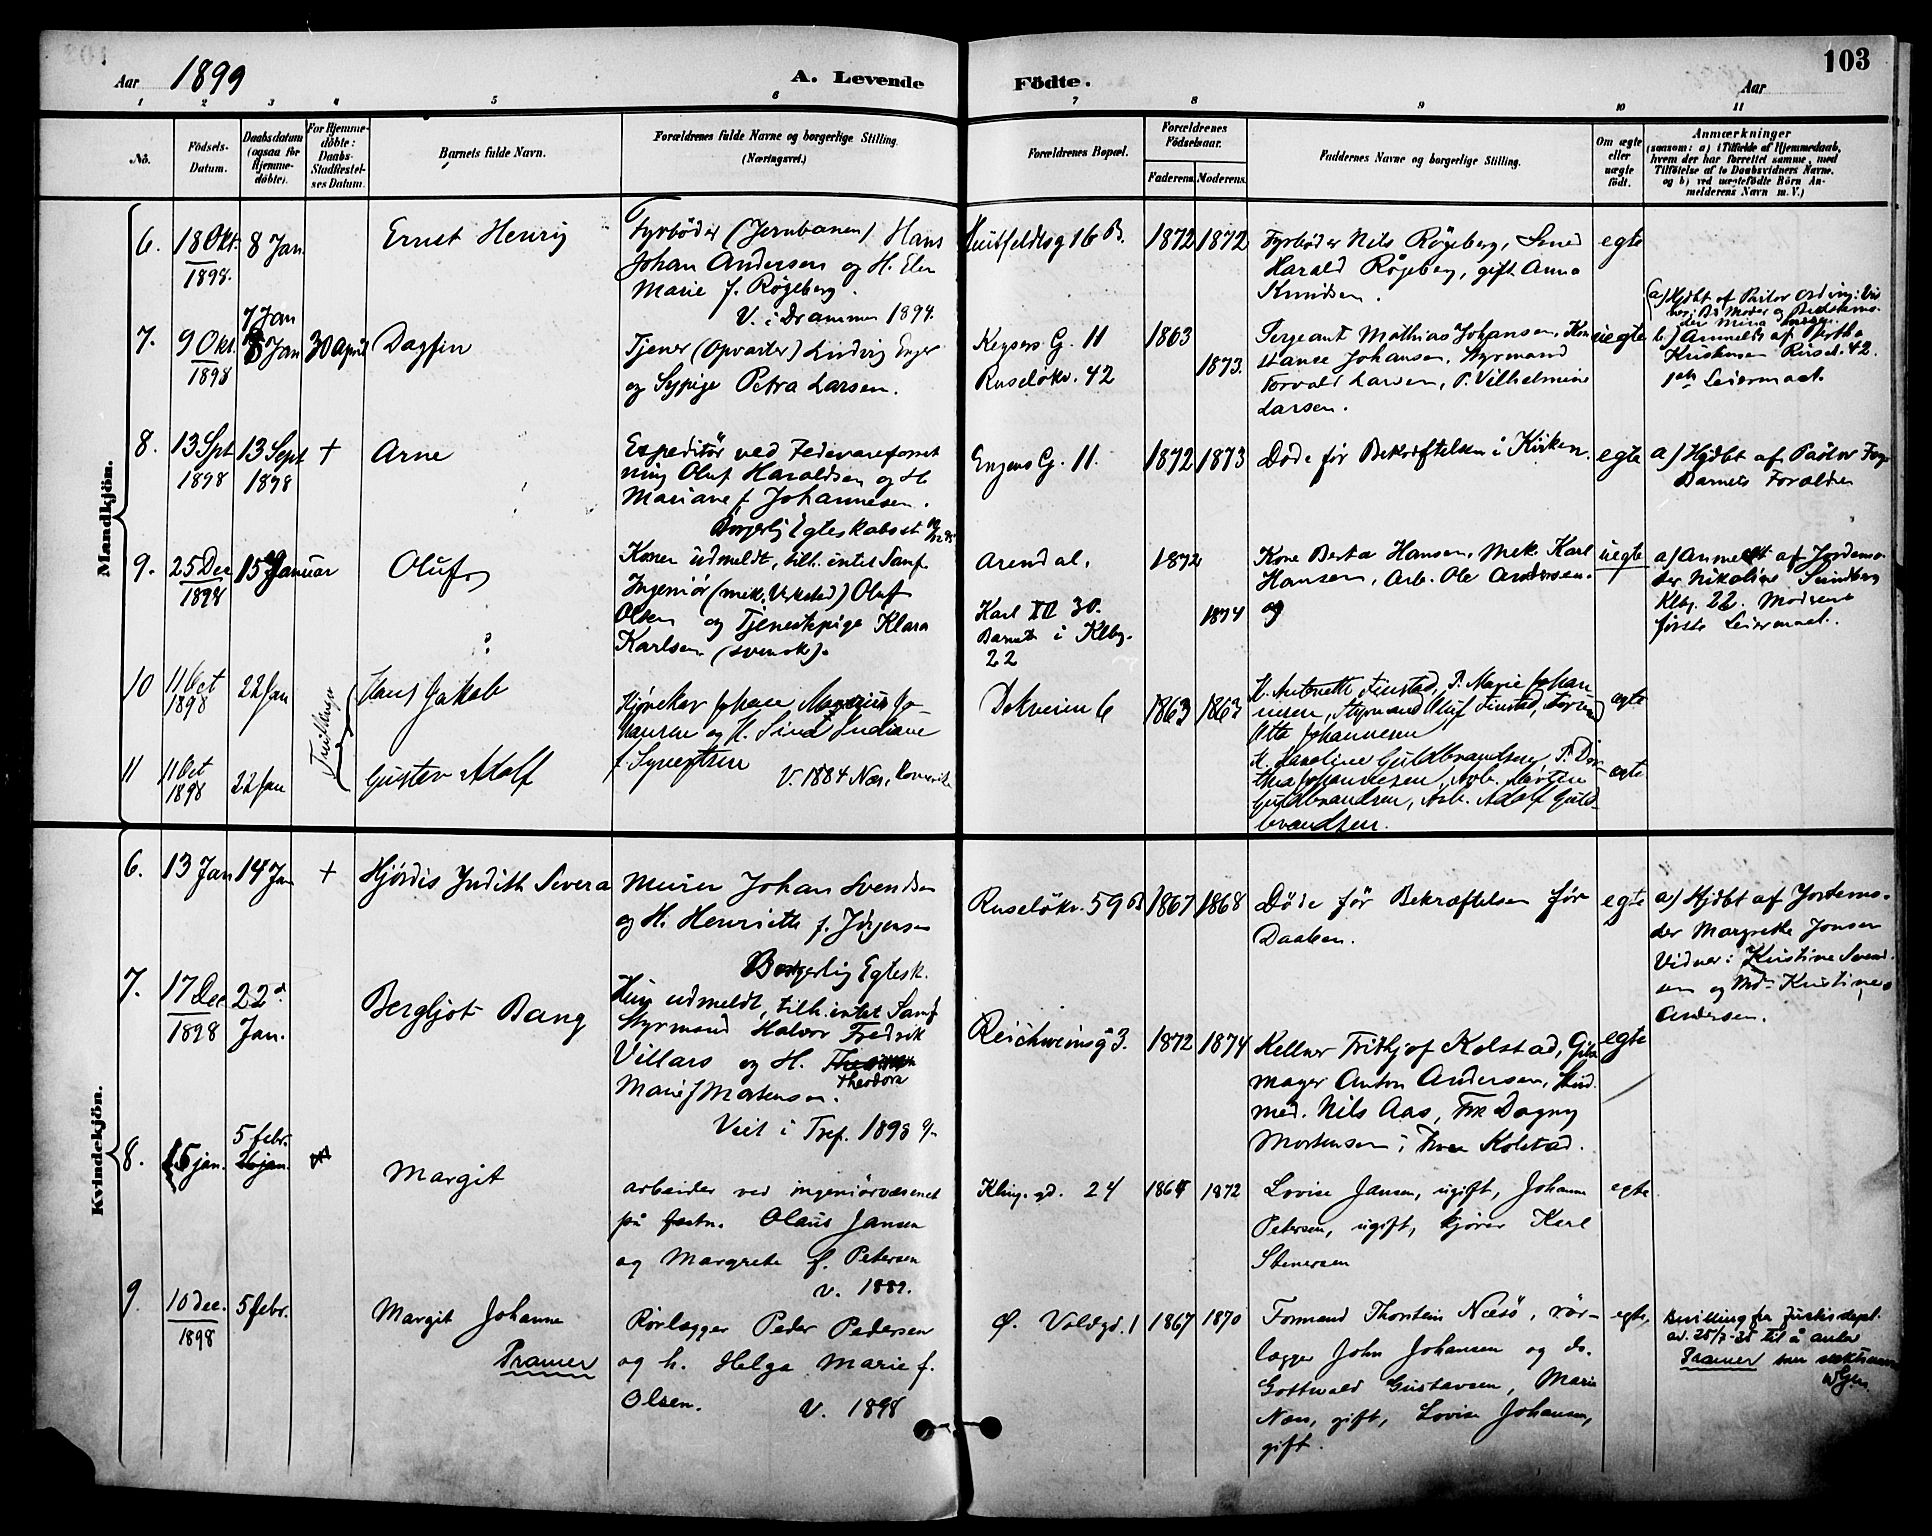 103
Aar 1899
A. Levende Födte.
Aar
1 2 3 4 5 6 7 8 9 10 11
No.
Födsels-Datum.
Daabsdatum (ogsaa for Hjemme-döbte).
For Hjemme-döbte: Daabs-Stadfæstel-ses Datum.
Barnets fulde Navn.
Forældrenes fulde Navne og borgerlige Stilling. (Næringsvei.)
Forældrenes Bopæl.
Forældrenes Födselsaar.
Faderens. Moderens.
Faddernes Navne og borgerlige Stilling.
Om ægte eller uægte födt.
Anmærkninger
(saasom: a) i Tilfælde af Hjemmedaab,
hvem der har forrettet samme, med
Tilföielse af to Daabsvidners Navne.
og b) ved uægtefödte Börn An-
melderens Navn m. V.)
Mandkjön.
6. 18 Okt. 1898. 8 Jan. Ernst Henry
Fyrbøder (Jernbanen) Hans
Johan Andersen og H. Elen
Marie f. Røgeberg.
V. i Drammen 1894.
Huitfeldtsg 16 B. 1872 1872
Fyrbøder Nils Røgeberg, Smed
Harald Røgeberg, gift Anna
Knudsen.
egte
7. 9 Okt. 1898 7 Jan 8 Jan 30 April Dagfin
Tjener (Opvarter) Ludvig Enger
og Sypige Petra Larsen.
Keysers G. 11
Ruseløkv. 42
1863
1873.
Sergeant Mathias Johansen, Kon
stanse Johansen, Styrmand
Torvald Larsen, P. Vilhelmine
Larsen.
uegte
a) Hjdbt af Pastor Ording: Vid
ner: Bs Moder og Bedstemo-
der Mina
b) Anmeldt af Bertha
Kristensen Rusel. 42.
1ste Leiermaal.
8. 13 Spt 1898 13 Sept 1898 + Arne
Expeditør ved Fedevareforret
ning Oluf Haraldsen og H.
Mariane f. Johannesen.
Borgerlig Egteskabsst
Engens G. 11. 1872 1873
Døde før Bekræftelsen i Kirken.
egte
a) Hjdbt af Pastor
Barnets Forældre
9. 25 Dec 1898 15 Januar Oluf
Konen udmeldt, tilh. intet Samf.
Ingeniør (mek. Verksted) Oluf
Olsen og Tjenestepige Klara
Karlsen (svensk).
Arendal.
Karl XII 30.
Barnet i Klbg.
22
1872
1874
Kone Berta Hansen, Mek. Karl
Hansen, Arb. Ole Andersen.
og
uegte
a) Anmeldt af Jordemo-
der Nikoline Sundberg
Klbg. 22. Moderens
første Leiermaal.
Tvillinger
10 11 Oct 1898 22 Jan Hans Jakob
Kjørekar Johan Magnius Jo-
hansen og H. Sina Indiane
f. Synestsen
V. 1884 Næs,
Dokveien 6 1863 1863
H. Antonette Finstad, P. Marie Johan-
nesen, Styrmand Oluf Finstad,
Otto Johannesen
egte
11 11 Oct 1898 22 Jan Gustav Adolf
H. Karoline Guldbrandsen, P. Dor-
thea Johannesen, Arb. Morten
Guldbrandsen, Arb. Adolf Guld-
brandsen.
egte
Kvindekjön.
6. 13 Jan 14 Jan + Hjørdis Judith Severa
Murer Johan Svendsen
og H. Henriette f. Jørgensen
Ruseløkv. 59 B 1867 1868
Døde før Bekræftelsen før
Daaben.
egte
a) Hjdbt af Jordemo-
der Margrethe Jonsen
Vidner: Kristine Svend-
sen og Md. Kristine
Andersen.
7. 17 Dec 1898 22 d. Jan. Bergljot Bang
Borgerlig Egtesk.
Hun udmeldt, tilh. intet Samf
Styrmand Halvor Fredrik
Villars og H.
Theodora
Marie f Mortensen.
Viet i Tref. 1898
Reichweinsg 3. 1872 1874
Kellner Trithjof Kolstad, Guld
mager Anton Andersen, Stud.
med. Nils Aas, Frk Dagny
Mortensen, Thora Kolstad.
egte
8. 15 jan. 5 febr. Margit
arbeider ved ingeniörvæsenet
på fæstn. Olaus Jansen
og Margrete f. Petersen
v. 1889.
Kling. gd. 24 1864 1872
Lovise Jansen, ugift, Johanne
Petersen, ugift, kjörer Karl
Stenersen
egte
9. 10 dec. 1898 5 febr. Margit Johanne
Pramer
Rörlægger Peder Pedersen
og h. Helga Marie f.
Olsen. V. 1898
Ø. Voldgd. 1 1867 1870
Formand Thorstein Næsö, rör-
lægger John Johansen og do.
Gottwald Gustavsen, Marie
Næss, gift, Lovise Johansen,
gift.
egte,
Bevilling fra Justisdept.
av 25/7-25 til å anta
Pramer som slektsnavn